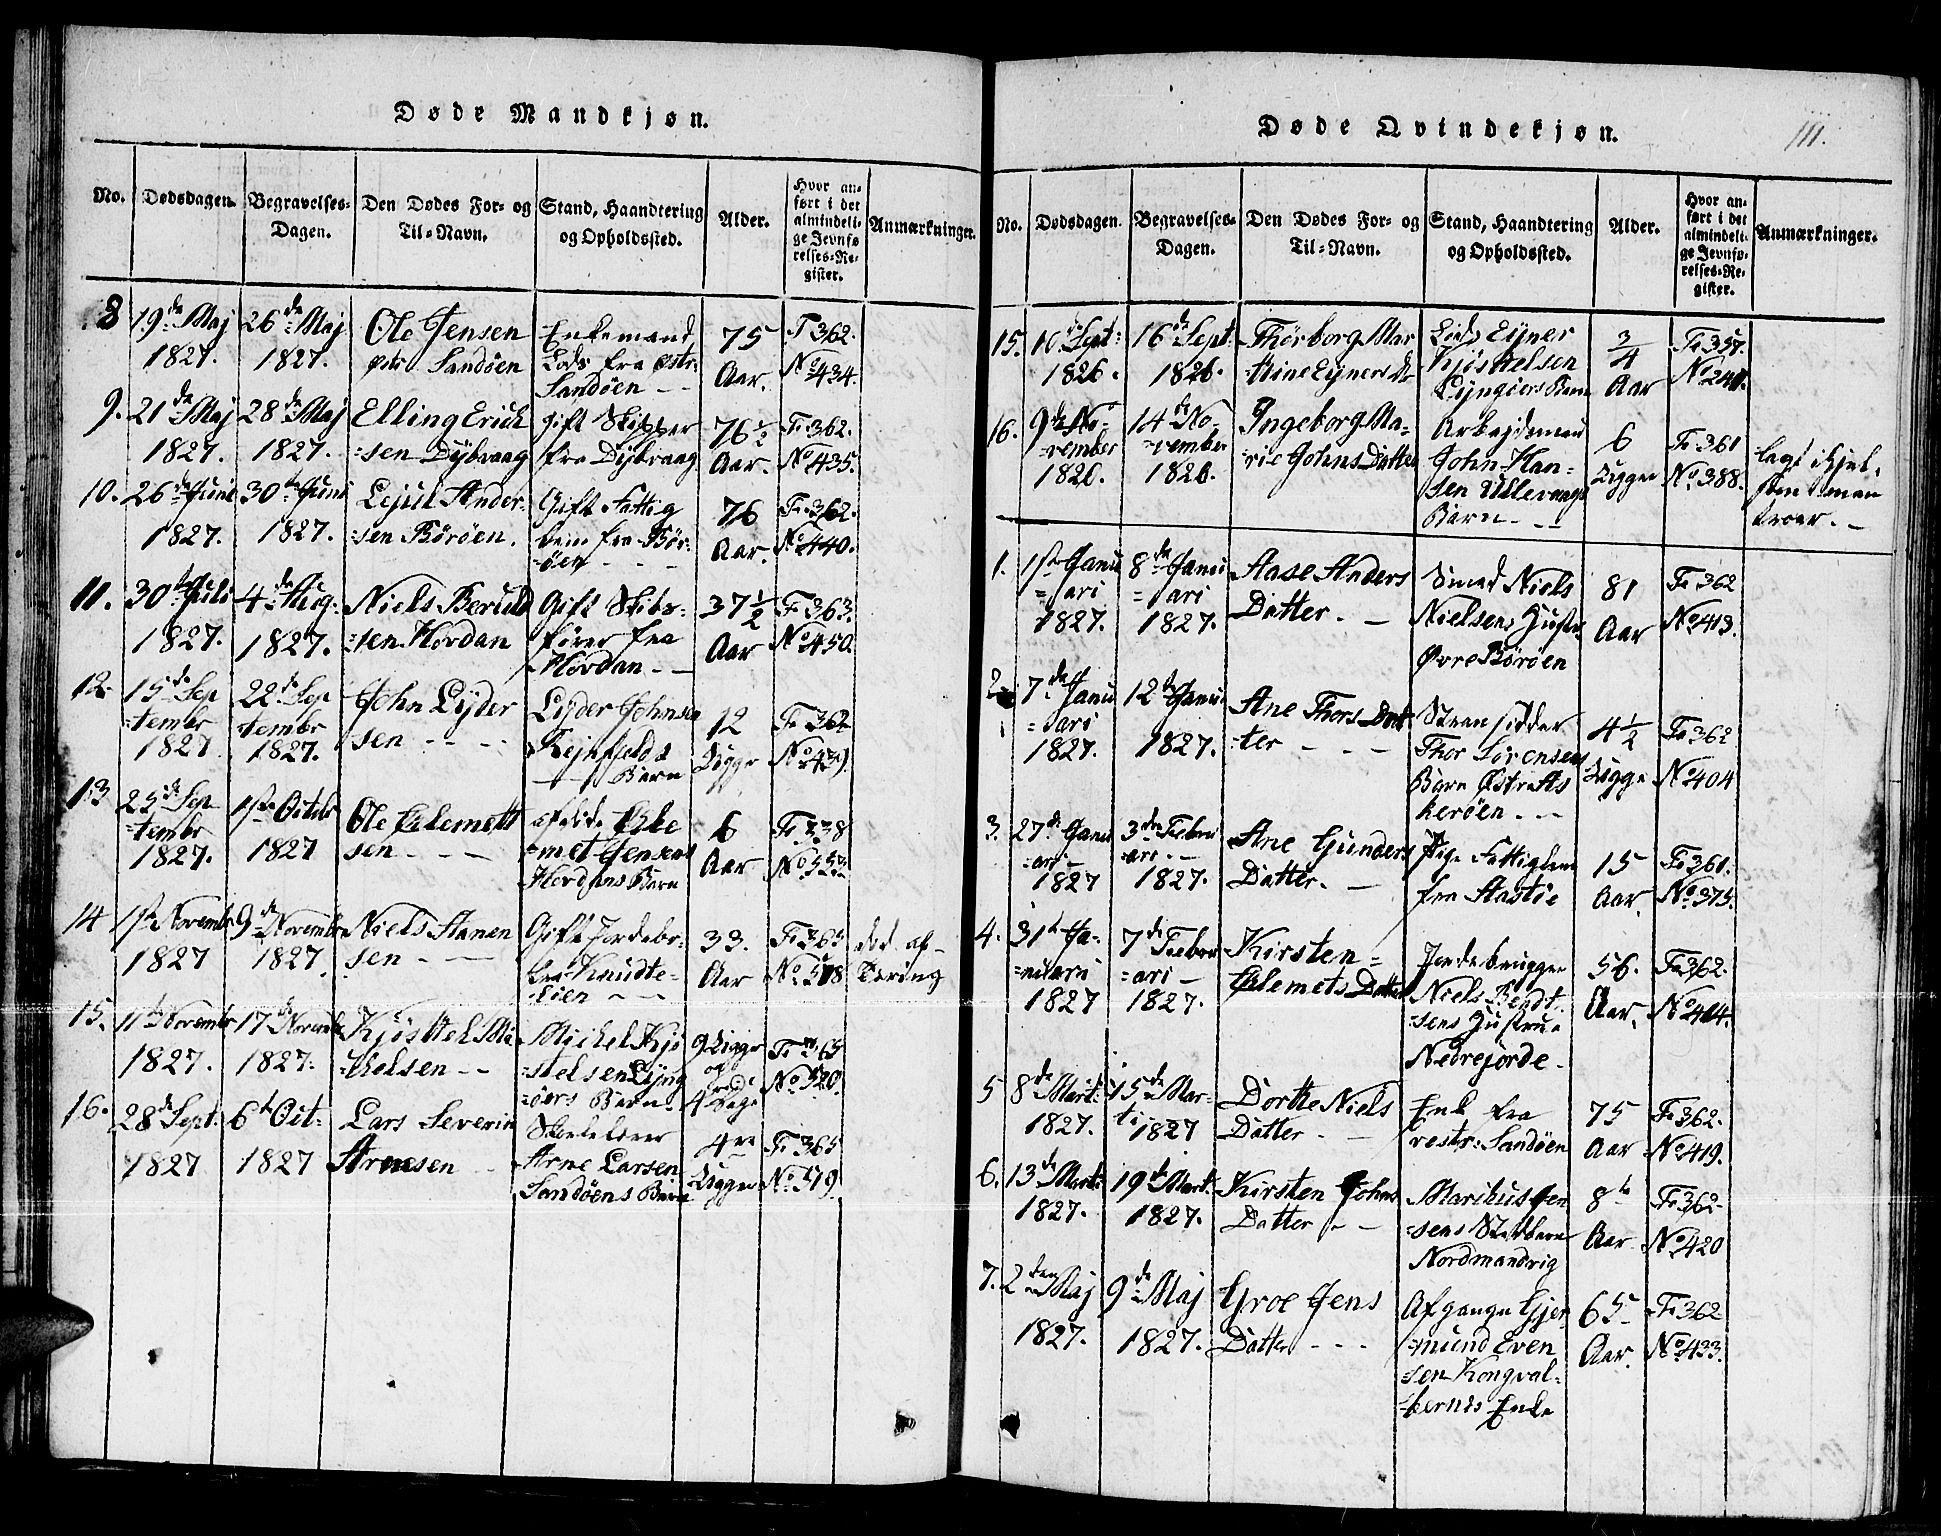 Døde Mandkjøn.
No.
Dødsdagen.
Begravelses-
Dagen.
Den Dødes For- og
Til-Navn.
Stand, Haandtering
og Opholdssted.
Alder.
Hvor an-
ført i det
almindeli-
ge Jevnfø
relses-Re-
gister.
Anmærkninger.
8
19de Maj
1827.
26de Maj
1827.
Ole Jensen
østr Sandøen
Enkemand
Lods fra østr:
Sandøen - -
75
Aar.
F 362.
No 434.
9.
21de Maj
1827.
28de Maj
1827.
Elling Erich
=sen Dybvaag
gift Skipper
fra Dybvaag
76 1/2
Aar.
Fr 362.
No 435.
10.
26de Juni
1827.
30te Juni
1827.
Lejul Ander-
=sen Børøen.
Gift Fattig
lem fra Bør-
=øen - - -
76
Aar.
Fr 362.
No 440.
11.
30te Juli
1827.
4de Aug:
1827.
Niels Beruld
=sen Hovdan
Gift Skibs-
fører fra
Hovdan - -
37 1/2
Aar
Fr 363.
No 450.
12.
15de Sep
=tembr
1827
22de Sep
=tembr
1827.
John Lyder
sen - - -
Lyder Johnsen
Barn
12
Figge
Fr 362
13
25de Sep
=tembr
1827.
1ste Octobr
1827
Ole Clemett
sen - - -
afdøde Cle
=met Jensens
Barn
6
Aar
14
1ste Novembr
1827
9de Novembr
1827.
Niels Hanen
sen - - -
Gift Jordebr-
fra Knudte-
33.
Aar
Fr 365
No 518
død af -
Tæring
15.
11te Novembr
1827.
17de Novembr
1827.
Kjøstel Mi
=kelsen - -
Michel Kjø
=stelsen Lyng
=ørs Barn.
9 Uuger
og
4 Dage
Fr 365
No 520.
16.
28de Sept:
1827
6te Oct:
1827
Lars Severin
Arnesen - -
Arne Larsen
Sandøens Barn
4re
Uugger
Fr 365
No 519.
Døde Qvindekjøn.
111.
No.
Dødsdagen.
Begravelses-
Dagen.
Den Dødes For- og
Til-Navn.
Stand, Haandtering
og Opholdssted.
Alder.
Hvor an-
ført i det
almindeli-
ge Jevnfø-
relses-Re-
gister.
Anmærkninger.
15.
10de Sept:
1826.
16de Sept:
1826.
Thørborg Mar
thine Ejners Dr
Lods Ejner
Kjøstelsen
Lyngørs Barn
3/4
Aar
Fr 357.
No 241.
16.
9de No-
=vember
1826.
14de No-
=vember
1826.
Ingeborg Ma-
rie Johns Datter
Arbejdsmand
John Han-
sen Ullevaags
Barn - -
6
Uugger
Fr 361
No 388.
1.
1ste Janu
=ari
1827.
8de Janu
=ari
1827.
Aase Anders
Datter. -
Smed Niels
Nielsens Hustr
Øvre Børøen
81
Aar
Fr 362
No 413.
2.
7de Janu
=ari
1827.
12te Janu
1827.
Ane Thors Dat
=ter - - -
Strandsidder
Thor Sørensens
Barn Østr: As
kerøen - - -
4 1/2
Uugge
Fr 362
No 404
3.
27de Janu
=ari -
1827
3den Febru
=ari. -
1827.
Ane Gunders
Datter. -
Pige Fattiglem
fra Hastøe
15
Aar.
Fr 361.
No 375.
4.
31te Ja-
=nuari
1827
7de Febru
=ari -
1827.
Kirsten =
Clemets Datter
Jordebrugger
Niels Bendt
=sens Hustrue
Nedrejorde -
56.
Aar.
Fr 362.
No 414.
5
8de Mart:
1827.
15de Mar-
ti 1827
Dorthe Niels
Datter - -
Enk fra
vestr: Sandøen
75
Aar
Fr 362.
No 419.
6.
13de Marti
1827.
19de Mart:
1827.
Kirsten Johns
Datter - -
Marikus Jen
=sens Stedbarn
Nordmandvig
8te
Aar
Fr 362.
No 420
7.
2den Maj
1827.
9de Maj
1827.
Groe Jens
Datter - - -
Afgangne Gjer
=mund Even
=sen Kongval-
=bernes Enke
65
Aar.
Fr 362
No 433.